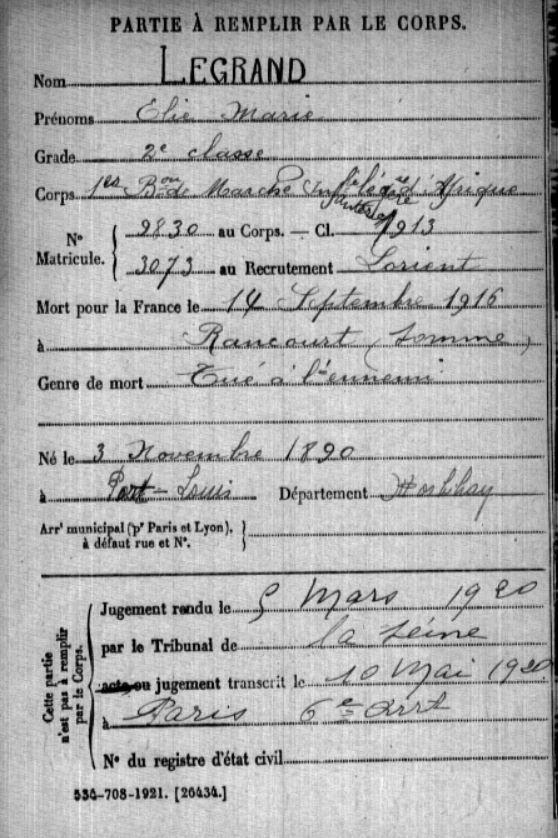 PARTIE À REMPLIR PAR LE CORPS.
Nom LEGRAND
Prénoms Elie Marie
Grade 2e classe
Corps 1er Bon de Marche Infanterie légère d'Afrique
N° Matricule. { 9830 au Corps. — Cl. 1913
3073 au Recrutement Lorient
Mort pour la France le 14 Septembre 1916
à Rancourt (Somme)
Genre de mort Tué à l'ennemi
Né le 3 Novembre 1890
à Port-Louis Département Morbihan
Arrt municipal (pr Paris et Lyon), }
à défaut rue et N°.
Cette partie n'est pas à remplir par le Corps.
Jugement rendu le 5 Mars 1920
par le Tribunal de la Seine
acte ou jugement transcrit le 10 Mai 1920
à Paris 6e Arrt
N° du registre d'état civil
534-708-1921. [26434.]